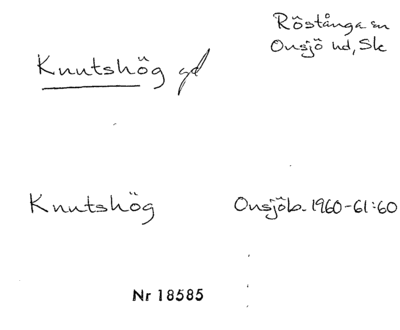 Röstånga sn
Onsjö hd, Sk
Knutshög gd
Knutshög
Onsjöb. 1960-61:60
Nr 18585